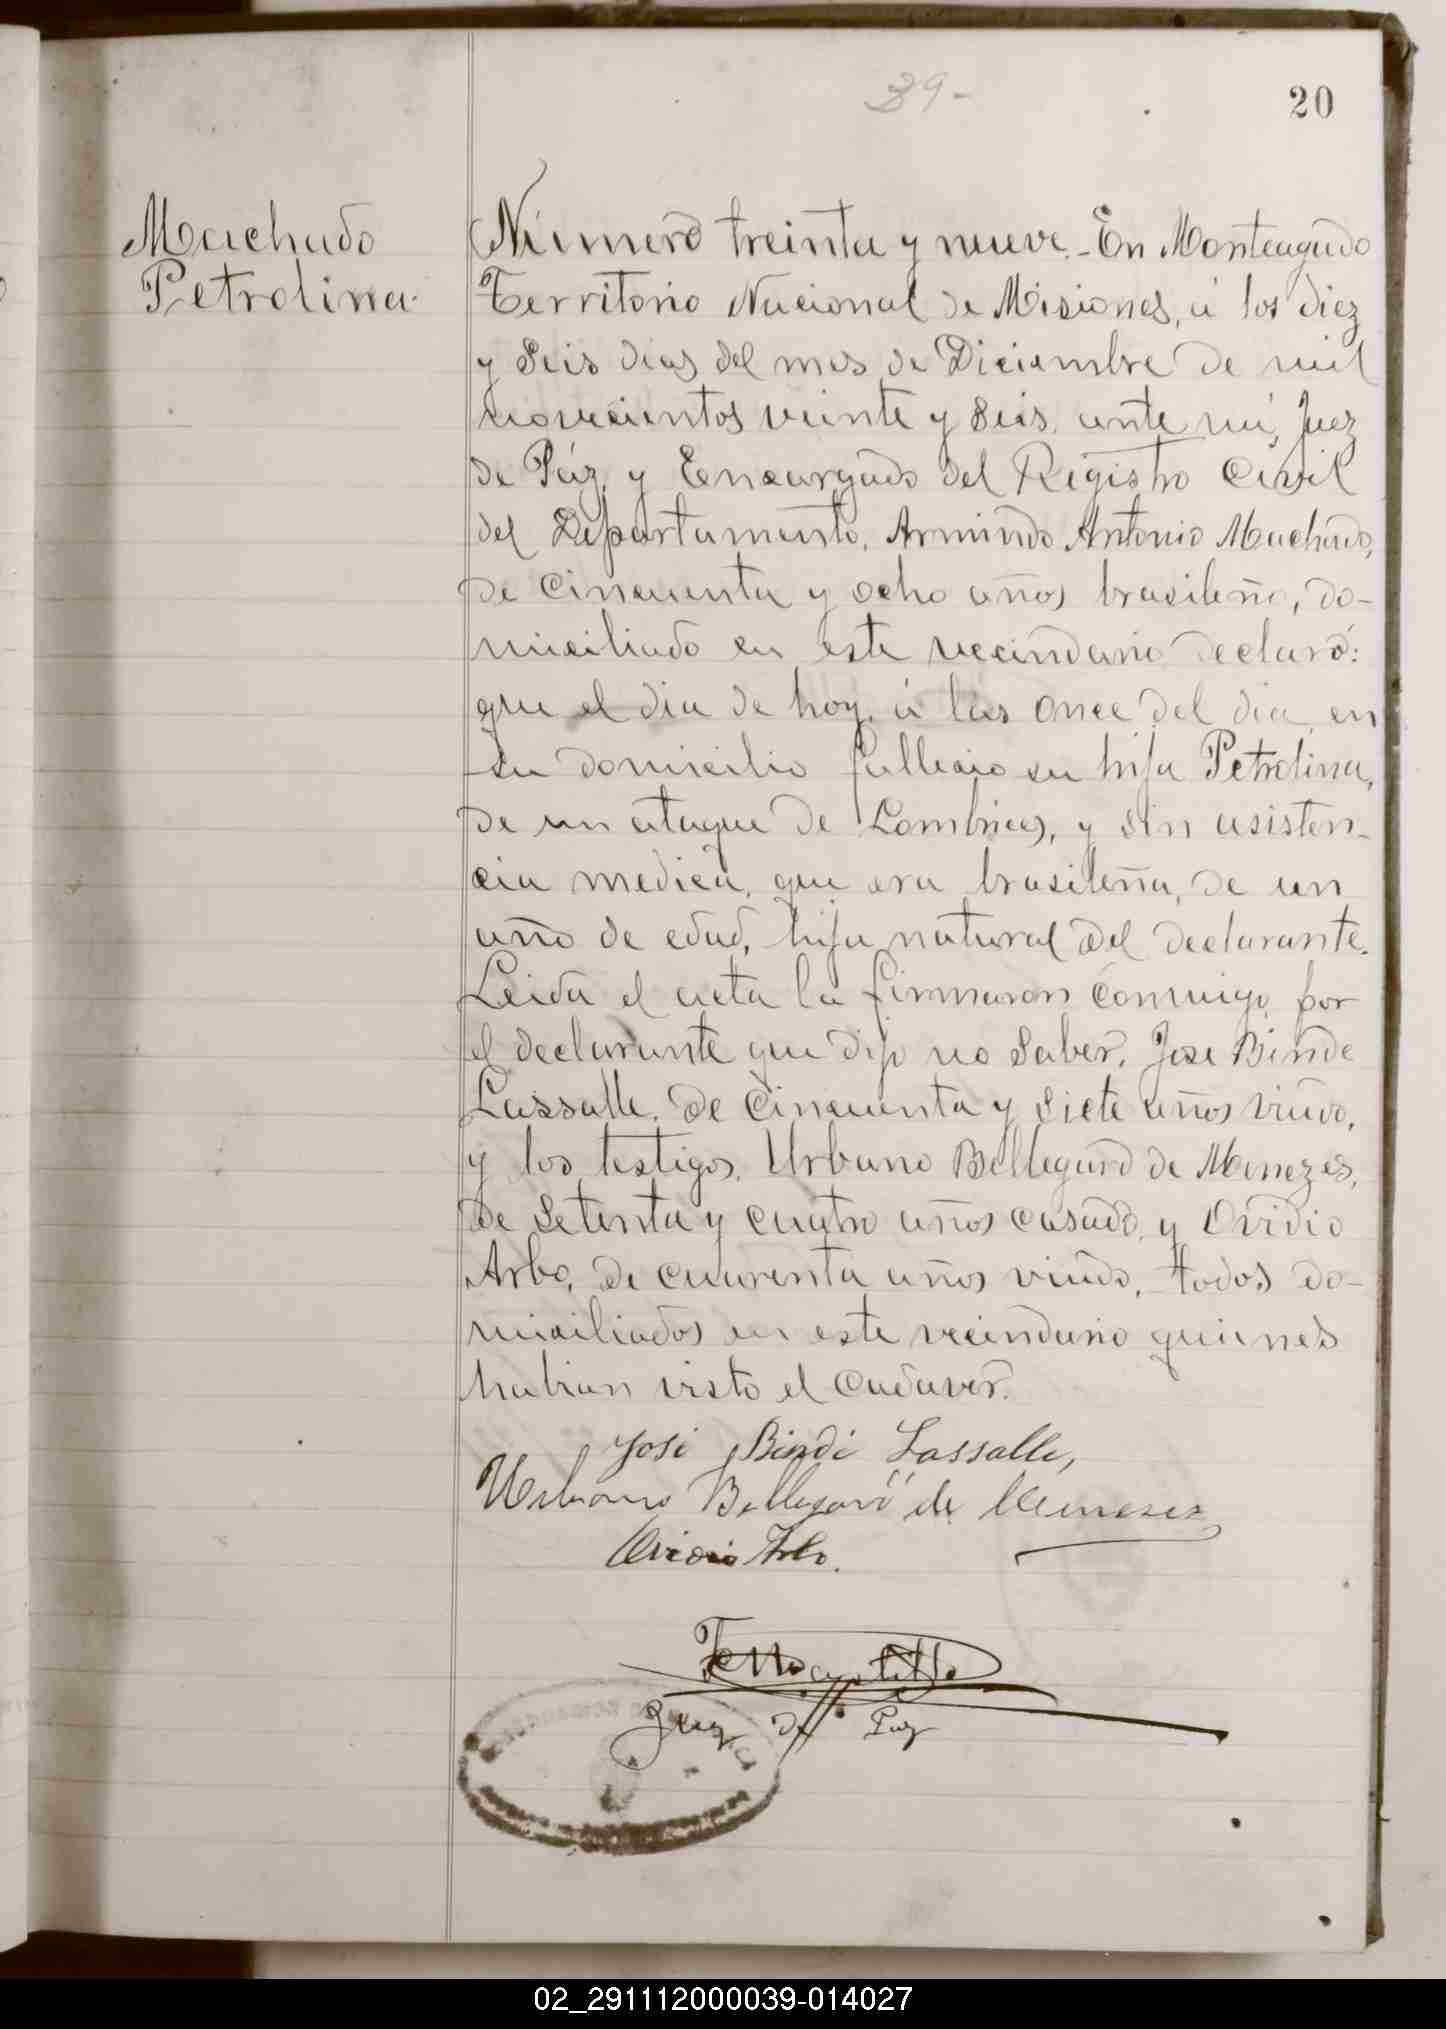 39-
20
Machado
Petrolina.
Número treinta y nueve.- En Monteagudo
Territorio Nacional de Misiones, á los diez
y seis dias del mes de Diciembre de mil
novecientos veinte y seis, ante mi, Juez
de Páz, y Encargado del Registro Civil
del Departamento, Armindo Antonio Machado,
de cincuenta y ocho años brasileño, do-
miciliado en este vecindario declaró:
que el dia de hoy, á las once del dia en
su domicilio fallecio su hija Petrolina,
de un ataque de Lombrices, y sin asisten-
cia medica, que era brasileña, de un
año de edad, hija natural del declarante.
Leida el acta la firmaron conmigo, por
el declarante que dijo no saber, Jose Binde
Lassalle, de cincuenta y siete años viudo,
y los testigos, Urbano Bellegard de Menezes,
de setenta y cuatro años casado, y Ovidio
Arbo, de cuarenta años viudo, todos do-
miciliados en este vecindario quienes
habian visto el cadaver.
José Bindé Lassalle,
Urbano Bellegard de Menezes
Ovidio Arbo.
Juez de Paz
02_291112000039-014027